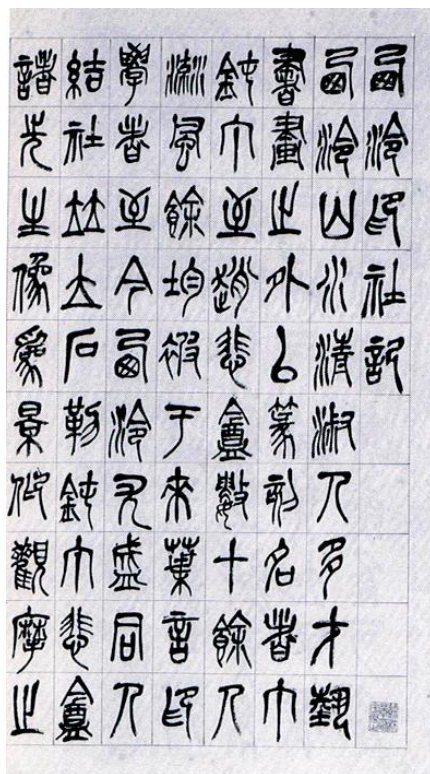 西泠印社記
西泠山水清淑人多才埶
書畫之外以篆刻名者丁
鈍丁至趙悲盦數十餘人
流風餘均被于來葉言印
學者至今西泠尤盛同人
結社竝立石勒鈍丁悲盦
諸先生像爲景仰觀摩之